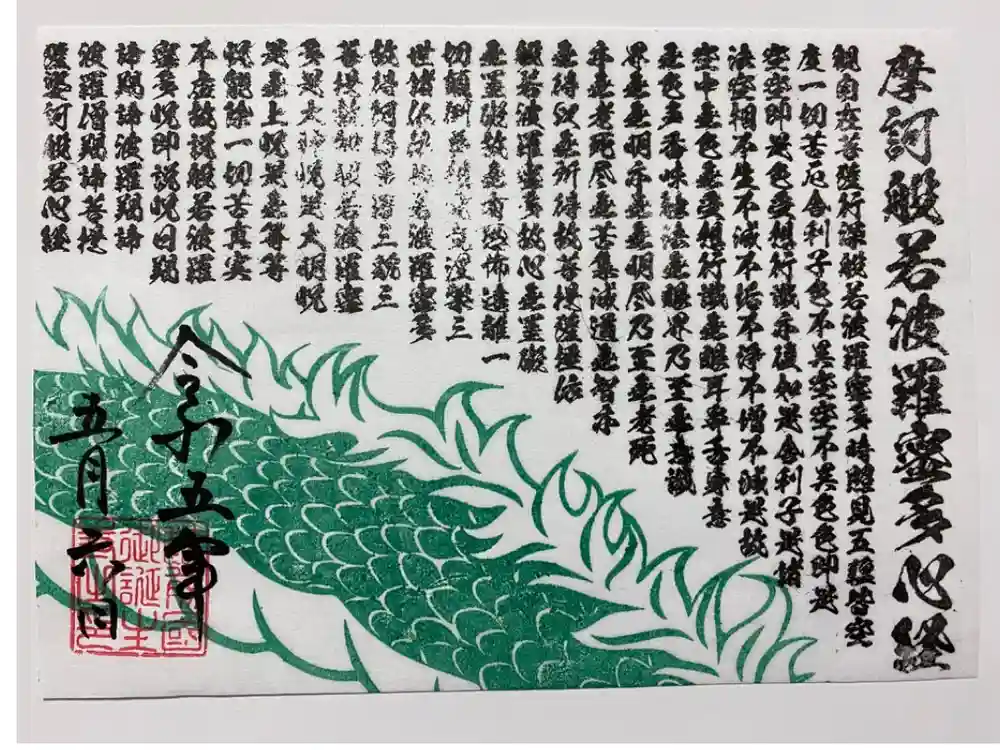 摩訶般若波羅蜜多心経
観自在菩薩行深般若波羅蜜多時照見五蘊皆空
度一切苦厄舎利子色不異空空不異色色即是
空空即是色受想行識亦復如是舎利子是諸
法空相不生不滅不垢不浄不増不減是故
空中無色無受想行識無眼耳鼻舌身意
無色声香味触法無眼界乃至無意識
界無無明亦無無明尽乃至無老死
亦無老死尽無苦集滅道無智亦
無得以無所得故菩提薩埵依
般若波羅蜜多故心無罣礙
無罣礙故無有恐怖遠離一
切顛倒夢想究竟涅槃三
世諸仏依般若波羅蜜多
故得阿耨多羅三藐三
菩提故知般若波羅蜜
多是大神呪是大明呪
是無上呪是無等等
呪能除一切苦真実
不虚故説般若波羅
蜜多呪即説呪曰羯
諦羯諦波羅羯諦
波羅僧羯諦菩提
薩婆訶般若心経
令和五年
五月六日
御誕生